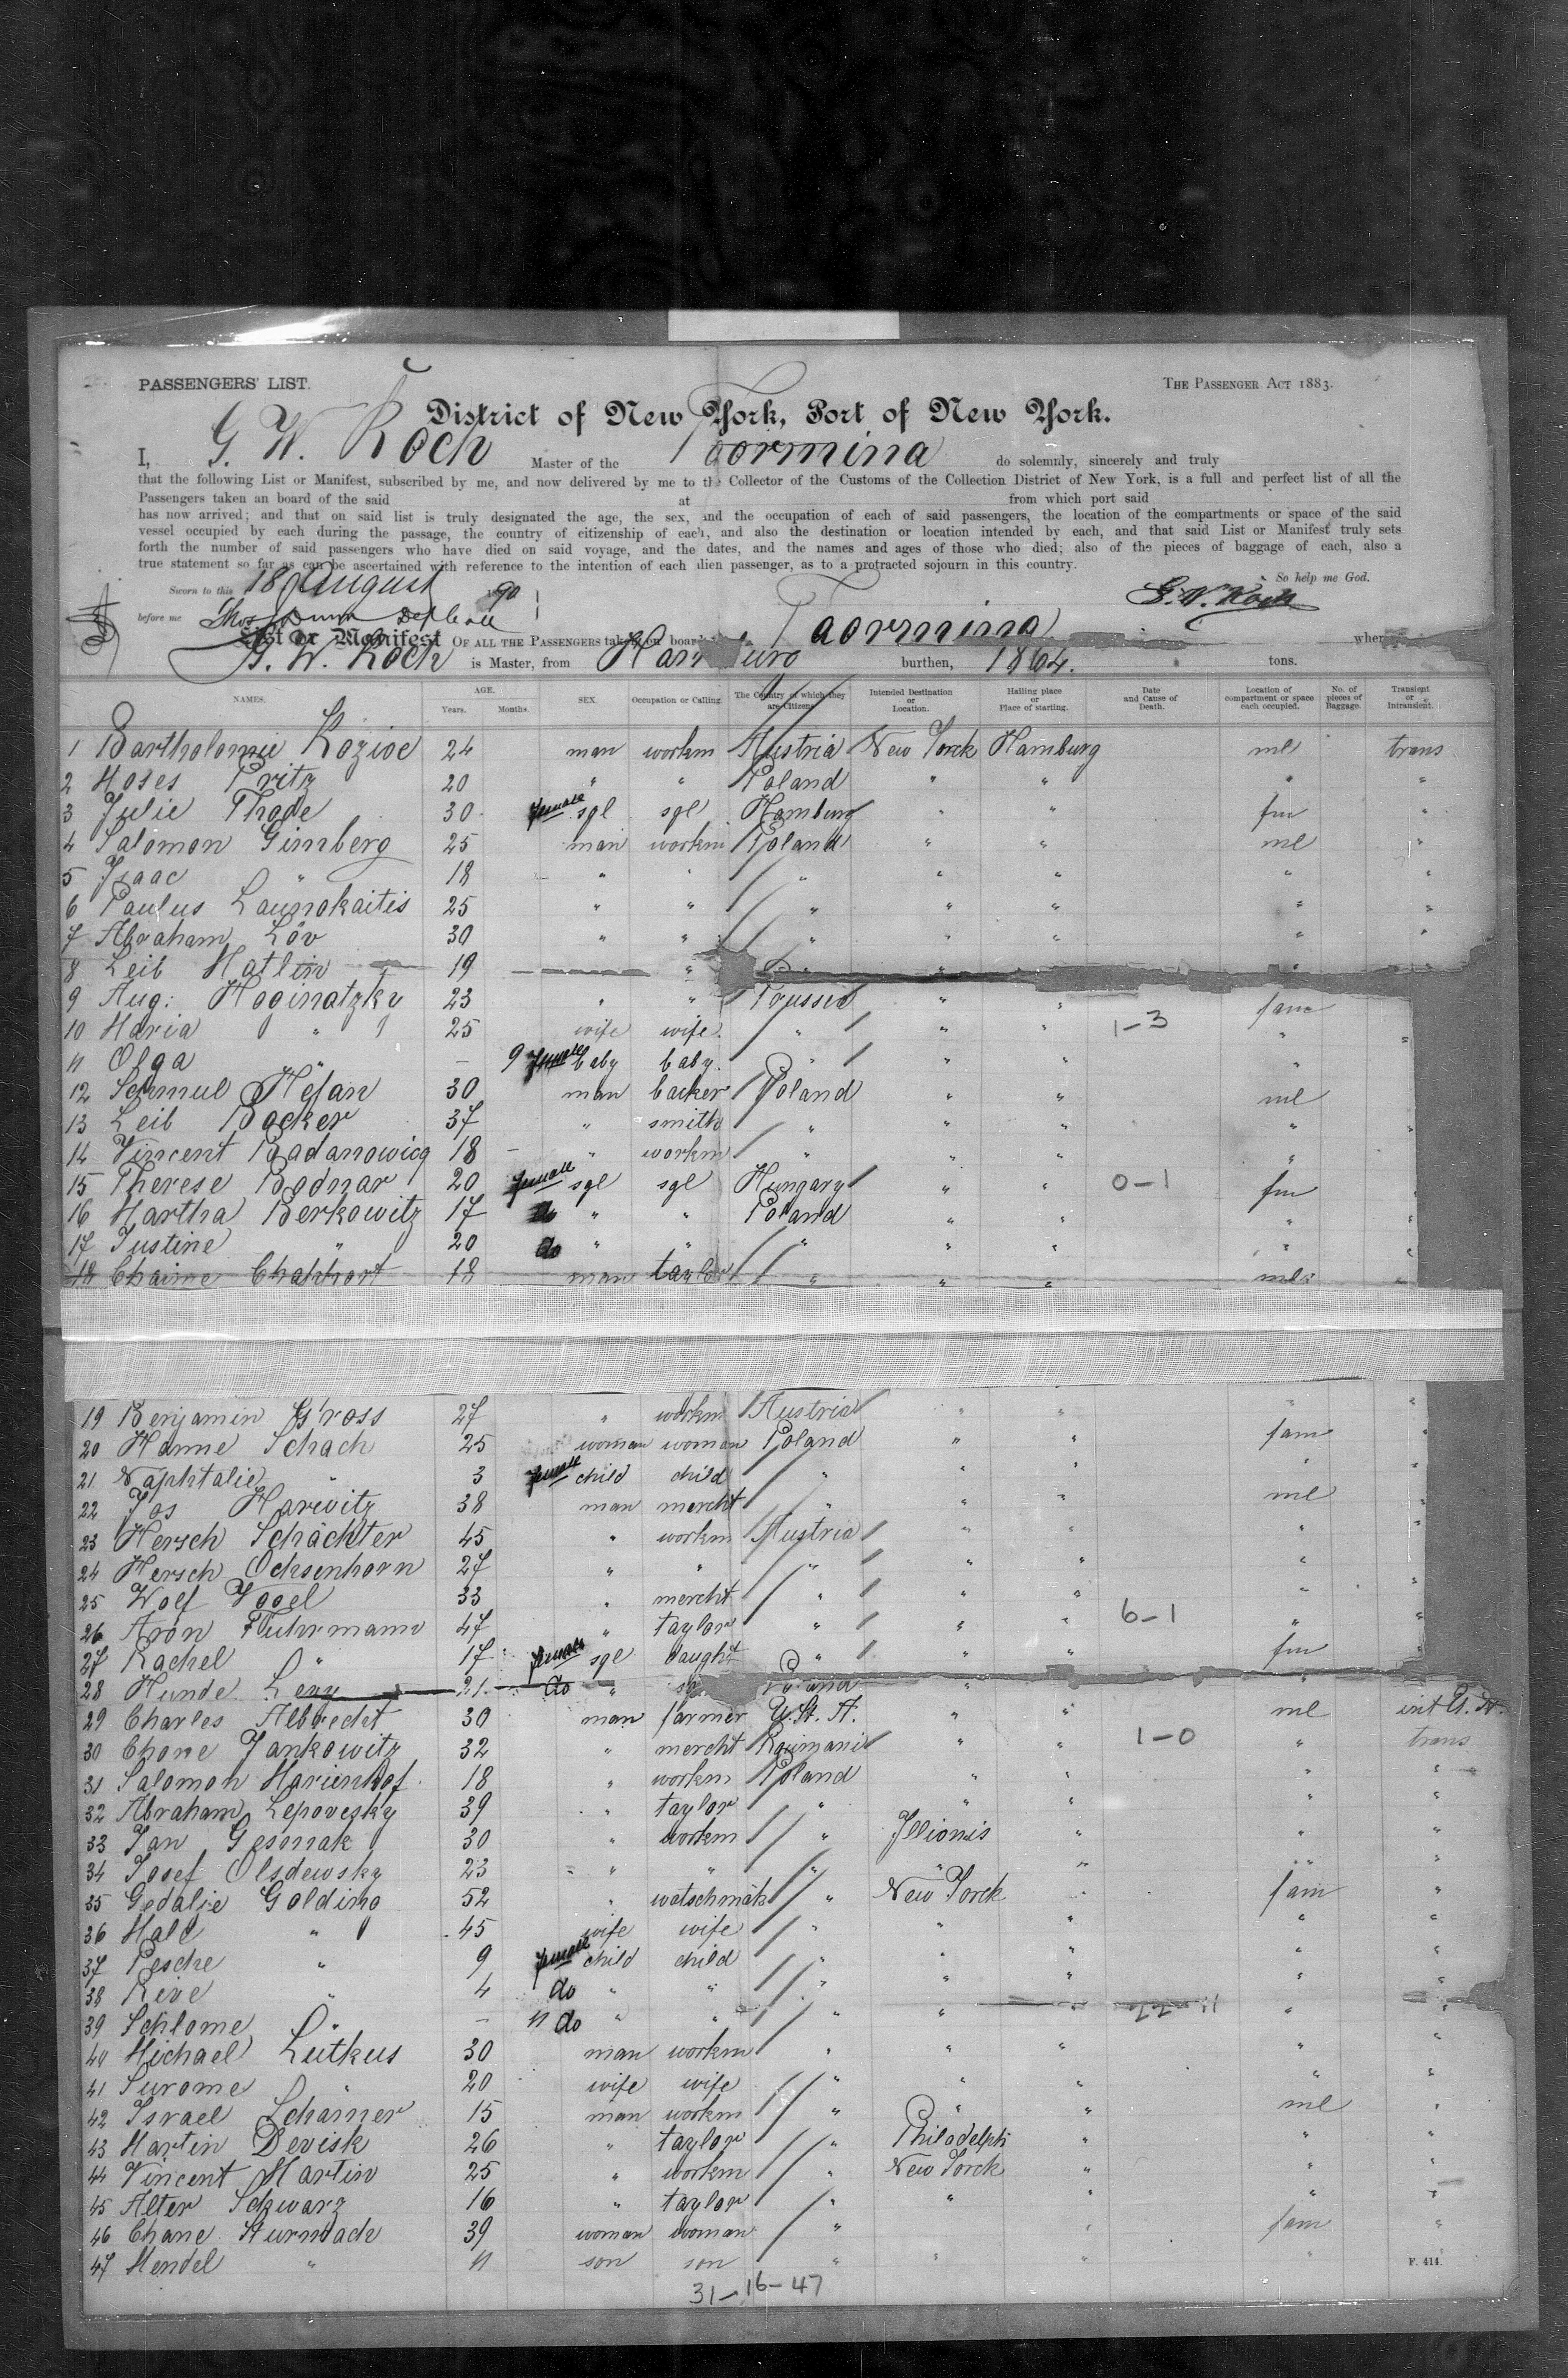 PASSENGERS' LIST.
THE PASSENGER ACT 1883.
District of New York, Port of New York.
I, G. W. Koch Master of the Taormina do solemnly, sincerely and truly
that the following List or Manifest, subscribed by me, and now delivered by me to the Collector of the Customs of the Collection District of New York, is a full and perfect list of all the
Passengers taken an board of the said at from which port said
has now arrived; and that on said list is truly designated the age, the sex, and the occupation of each of said passengers, the location of the compartments or space of the said
vessel occupied by each during the passage, the country of citizenship of each, and also the destination or location intended by each, and that said List or Manifest truly sets
forth the number of said passengers who have died on said voyage, and the dates, and the names and ages of those who died; also of the pieces of baggage of each, also a
true statement so far as can be ascertained with reference to the intention of each alien passenger, as to a protracted sojourn in this country.
So help me God.
Sworn to this 18 August 1890
G. W. Koch
before me Thos Dunn
List or Manifest OF ALL THE PASSENGERS taken on board Taormina
G. W. Koch is Master, from Hamburg burthen, 1864. tons.
NAMES. AGE. Years. Months. SEX. Occupation or Calling. The Country of which they are Citizens. Intended Destination or Location. Halling place Place of starting. Date and Cause of Death. Location of compartment or space each occupied. No. of pieces of Baggage. Transient or Intransient.
1 Bartholomie Kozioe 24 man workm Austria New Yorck Hamburg ml trans
2 Moses Pritz 20 " " Poland " " " "
3 Julie Thode 30 female sgl sgl Hamburg " " fm "
4 Salomon Gimberg 25 man workm Poland " " ml "
5 Isaac " 18 " " " " " " "
6 Paulus Launokaitis 25 " " " " " " "
7 Abraham Löv 30 " " " " " " "
8 Leib Matlin 19 " " "
9 Aug: Hoginatzky 23 " " Prussia " " fam
10 Maria " 25 wife wife " " " 1-3 " "
11 Olga " — 9 female baby baby " " " "
12 Schmul Hejan 30 man backer Poland " " ml
13 Leib Backer 37 " smith " " " " "
14 Vincent Radanowicg 18 " workm " " " "
15 Therese Bodnar 20 female sgl sgl Hungary " " 0-1 fm
16 Martha Berkowitz 17 do " " Poland " " " "
17 Justine " 20 do " " " " " " "
18 Chaime Chahhort 18 man taylor " " " ml "
19 Benjamin Gross 27 " workm Austria " " " "
20 Hanne Schach 25 woman woman Poland " " fam "
21 Naphtalie " 3 female child child " " " " "
22 Jos Horwitz 38 man mercht " " " ml "
23 Hersch Schächter 45 " workm Austria " " " "
24 Hersch Ochsenhorn 27 " " " " " " "
25 Wolf Vogel 33 " mercht " " " " "
26 Aron Fuhrmann 47 " taylor " " " 6-1 " "
27 Rachel " 17 female sgl daught " " " fm
28 Hunde Levy 21 do " Poland " "
29 Charles Albrecht 30 man farmer U. St. A. " " ml int U. St.
30 Chone Jankowitz 32 " mercht Roumani " " 1-0 " trans
31 Salomon Marienhof 18 " workm Poland " " " "
32 Abraham Lepovesky 39 " taylor " " " " "
33 Jan Gesonak 30 " workm " Illionis " " "
34 Josef Olsdewsky 23 " " " " " " "
35 Gedalje Golding 52 " watschmak " New Yorck " fam "
36 Male " 45 wife wife " " " " "
37 Pesche " 9 female child child " " " " "
38 Rive " 4 do " " " " " " "
39 Schlome " — 11 do " " " " " 11-22 " "
40 Michael Lutkus 30 man workm " " " " "
41 Surome " 20 wife wife " " " " "
42 Israel Schamer 15 man workm " " " ml "
43 Martin Devisk 26 " taylor " Philadelph " " "
44 Vincent Martin 25 " workm " New Yorck " " "
45 Alter Schwarz 16 " taylor " " " " "
46 Chane Sturmack 39 woman woman " " fam "
47 Mendel " 11 son son " " " "
F. 414.
31-16-47